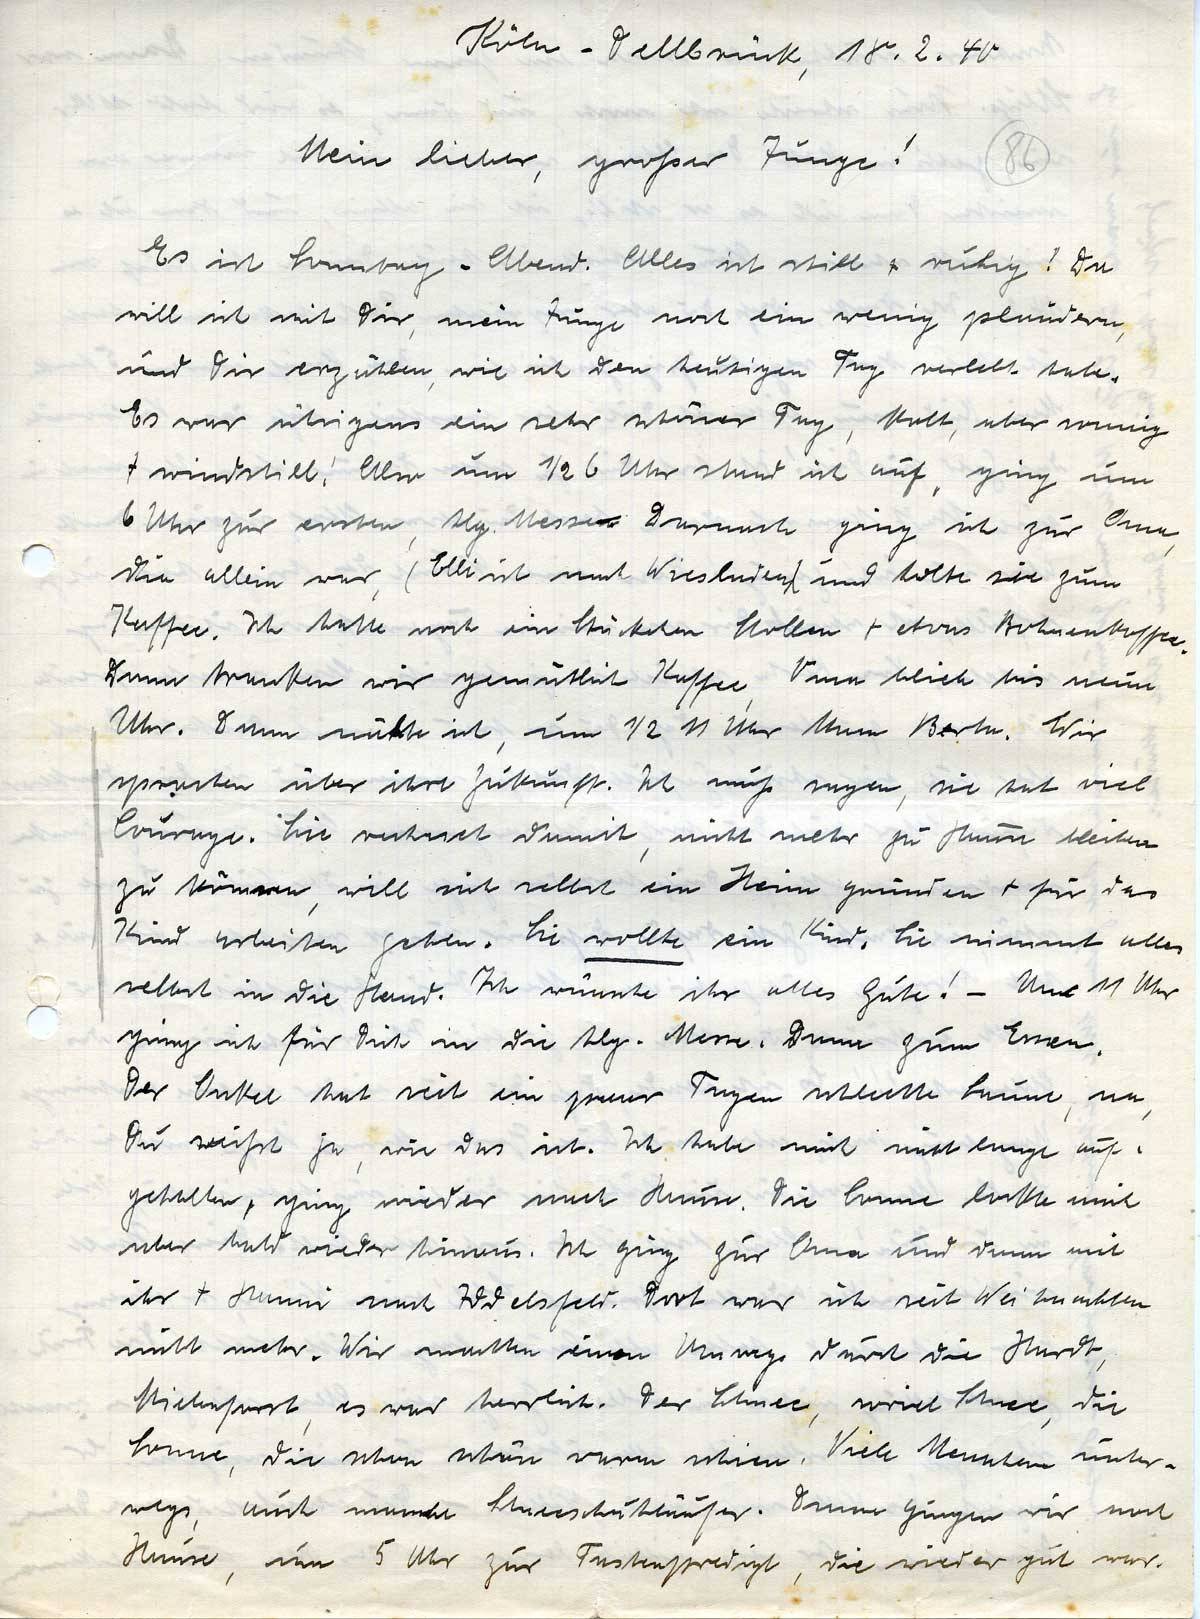 Köln - Dellbrück, 18. 2. 40
Mein lieber, großer Junge!
86
Es ist Sonntag - Abend. Alles ist still + ruhig! Da
will ich mit Dir, mein Junge noch ein wenig plaudern,
und Dir erzählen, wie ich den heutigen Tag verlebt habe.
Es war übrigens ein sehr schöner Tag, kalt, aber sonnig
+ windstill! Also um 1/2 6 Uhr stand ich auf, ging um
6 Uhr zur ersten, hlg. Messe. Darnach ging ich zur Oma,
die allein war, (Elli ist nach Wiesbaden) und holte sie zum
Kaffee. Ich hatte noch ein Stückchen Stollen + etwas Bohnenkaffee.
Dann tranken wir gemütlich Kaffee, Oma blieb bis neun
Uhr. Dann mußte ich, um 1/2 11 Uhr kam Berta. Wir
sprachen über ihre Zukunft. Ich muß sagen, sie hat viel
Courage. Sie rechnet damit, nicht mehr zu Hause bleiben
zu können, will sich selbst ein Heim gründen + für das
Kind arbeiten gehen. Sie wollte ein Kind. Sie nimmt alles
selbst in die Hand. Ich wünsche ihr alles Gute! - Um 11 Uhr
ging ich für Dich in die hlg. Messe. Dann zum Essen.
Der Onkel hat seit ein paar Tagen schlechte Laune, na,
Du weißt ja, wie das ist. Ich habe mich nicht lange auf-
gehalten, ging wieder nach Hause. Die Sonne lockte mich
aber bald wieder hinaus. Ich ging zur Oma und dann mit
ihr + Hanni nach Iddelsfeld. Dort war ich seit Weihnachten
nicht mehr. Wir machten einen Umweg durch die Hardt,
es war herrlich. Der Schnee, soviel Schnee, die
Sonne, die schon schön warm schien. Viele Menschen unter-
wegs, auch manche Schneeschuhläufer. Dann gingen wir nach
Hause, um 5 Uhr zur Fastenpredigt, die wieder gut war.